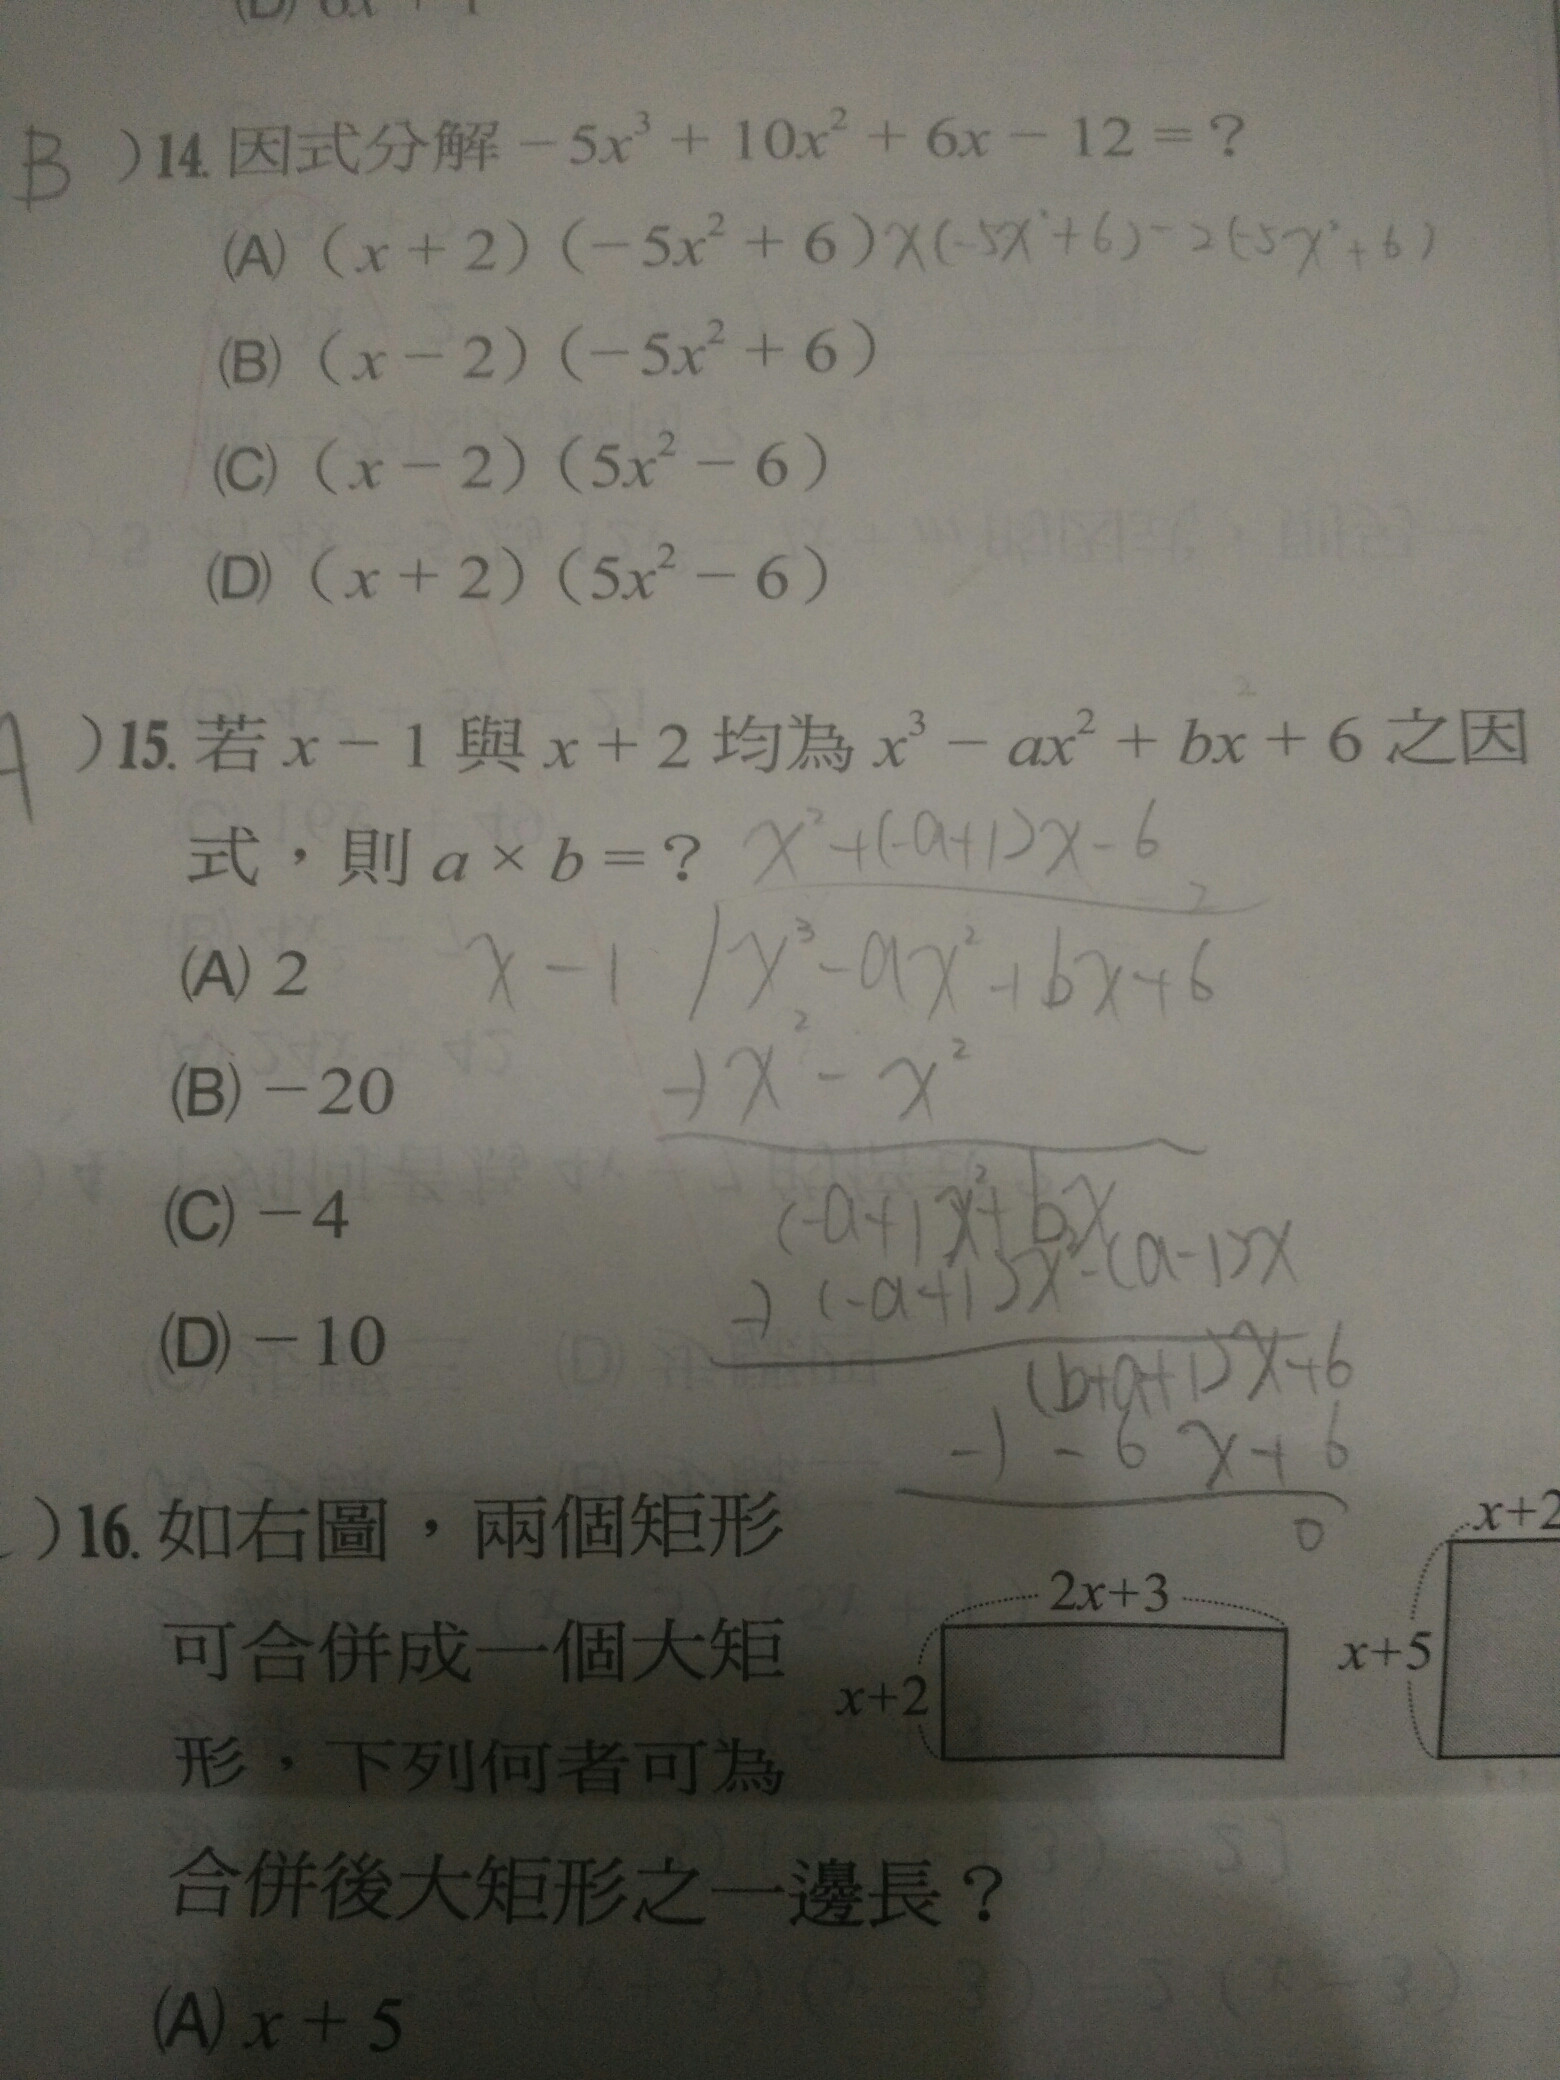 B )14. 因式分解 −5x³ + 10x² + 6x − 12 = ?
(A) (x + 2) (−5x² + 6) x(-5x²+6)-2(-5x²+6)
(B) (x − 2) (−5x² + 6)
(C) (x − 2) (5x² − 6)
(D) (x + 2) (5x² − 6)
A )15. 若 x − 1 與 x + 2 均為 x³ − ax² + bx + 6 之因
式，則 a × b = ? x²+(-a+1)x-6
(A) 2 x-1 x³-ax²+bx+6
(B) −20 -) x² - x²
(C) −4 (-a+1)x²+bx
-) (-a+1)x²-(a-1)x
(D) −10 (b+a+1)x+6
-) -6x+6
0
)16. 如右圖，兩個矩形
可合併成一個大矩
形，下列何者可為
合併後大矩形之一邊長？
2x+3
x+2
x+2
x+5
(A) x + 5